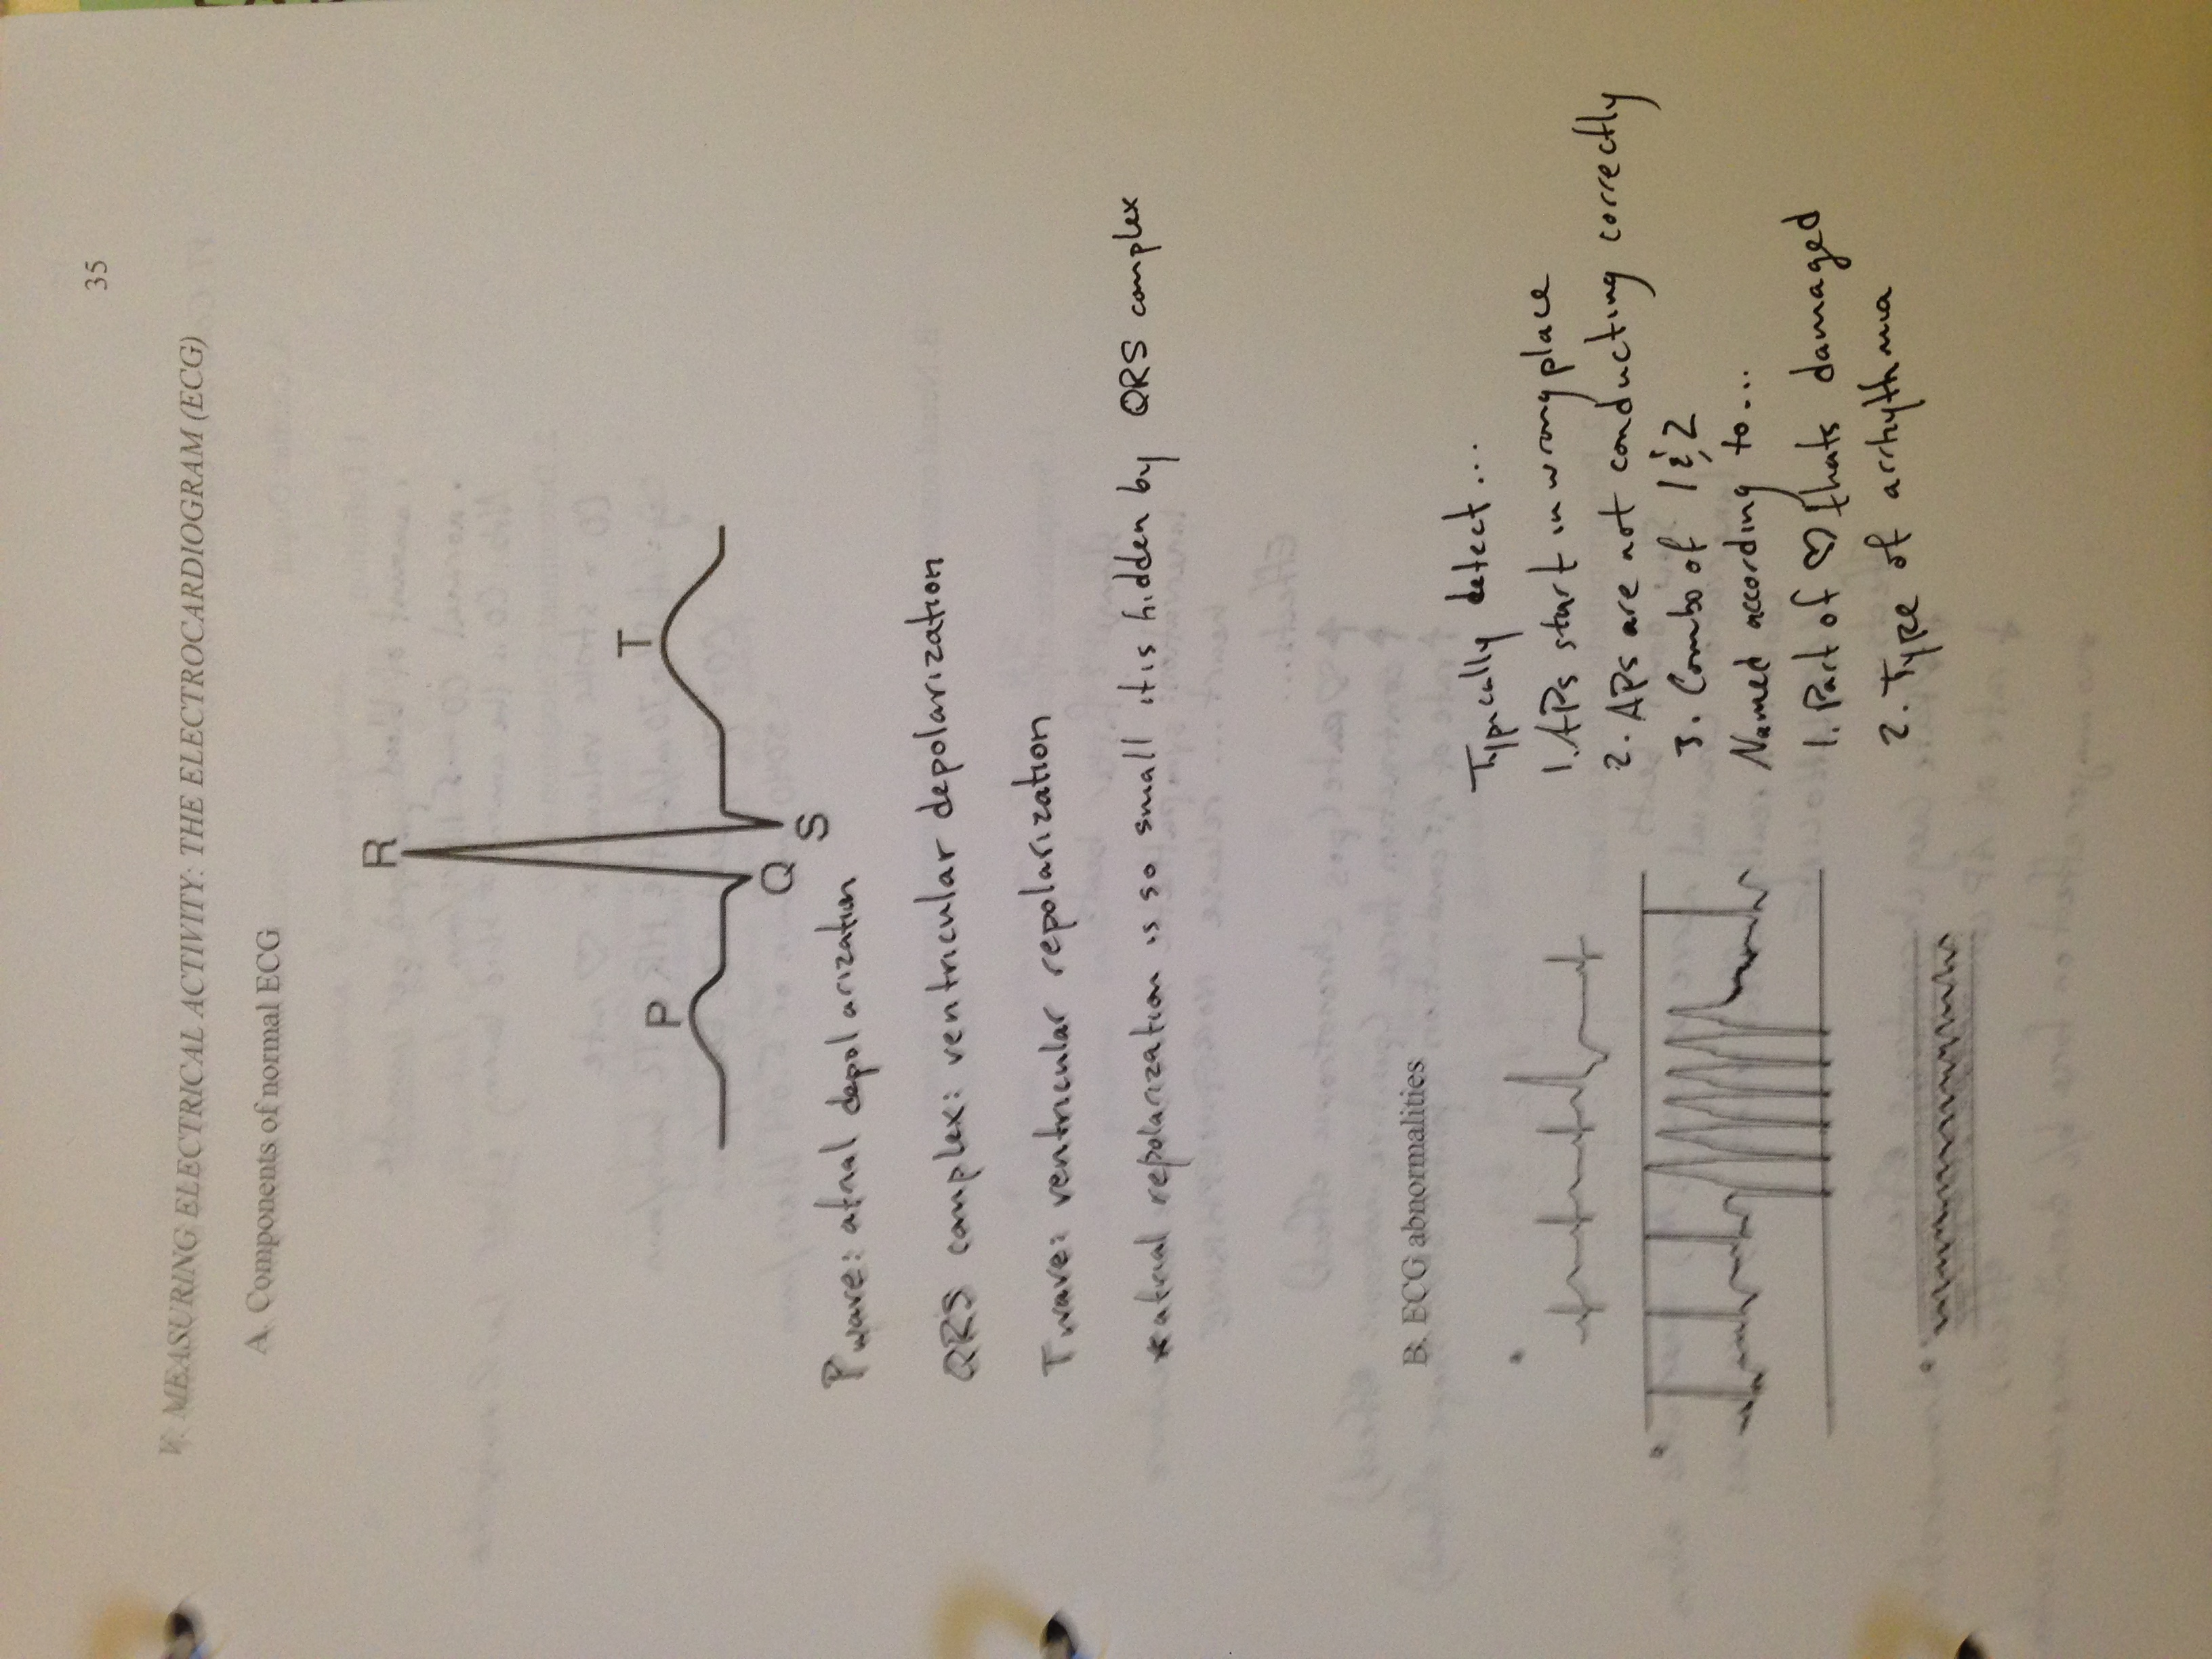 35
V. MEASURING ELECTRICAL ACTIVITY: THE ELECTROCARDIOGRAM (ECG)
A. Components of normal ECG
R
T
P
Q
S
P wave: atrial depolarization
QRS complex: ventricular depolarization
T wave: ventricular repolarization
*atrial repolarization is so small it is hidden by QRS complex
B. ECG abnormalities
Typically detect...
1. APs start in wrong place
2. APs are not conducting correctly
3. Combo of 1 & 2
Named according to...
1. Part of ♡ thats damaged
2. Type of arrhythma